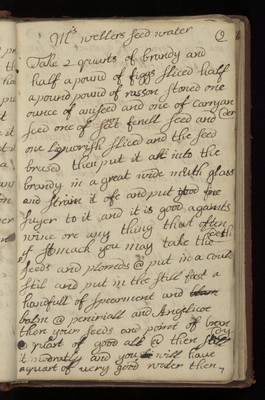 Mrs wellers seed water
Take 2 quarts of brandy and
half a pound of figgs sliced half
a pound pound of rason stoned one
ounce of aniseed and one of carryan
der
seed one of sett fenell seed and
one Liquorish sliced and the seed
brused then put it all into the
brandy in a great wide mouth glass
and strain it ofe and put good fine
suger to it and it is good against
wine ore any thing that often
y stomack you may take the
seeds and plomes @ put in a could
still and put in the still fast a
handfull of spearment and
balm @ peniriall and Angelicoe
then your seeds and point of
a quart of good all @ then
it modratly and you will have
a quart of very good water then